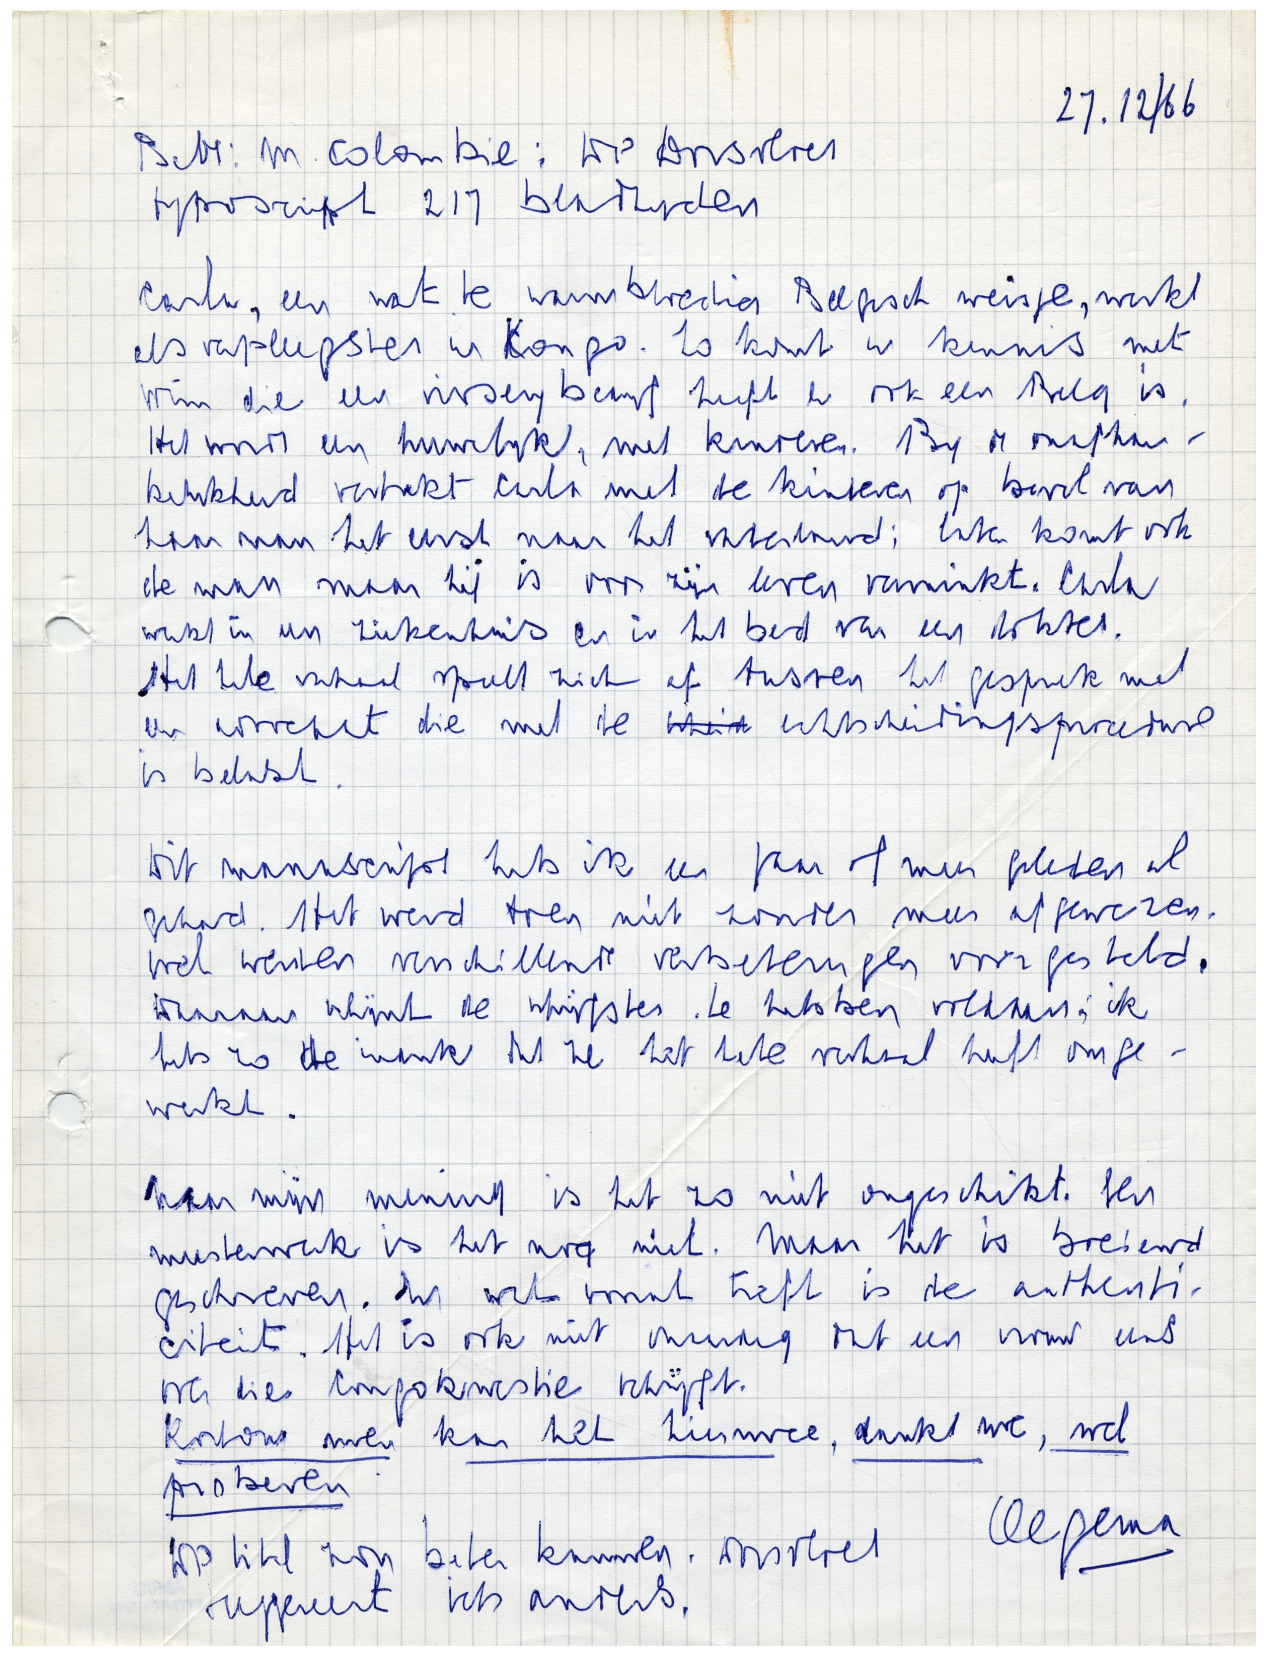 27.12/66
Betr: M. Colombie: De Dossolver
typoscript 217 bladzijden
Carla, een wat te warmbloedig Belgisch meisje, werkt
als verpleegster in Kongo. Zo komt in kennis met
Wim die een vissery bedrijf heeft en ook een Belg is.
Het wordt een huwelijk, met kinderen. By de onafhan-
kelijkheid vertrekt Carla met de kinderen op bevel van
haar man het eerst naar het vaderland; later komt ook
de man maar hij is voor zijn leven verminkt. Carla
werkt in een ziekenhuis en in het bed van een dokter.
Het hele verhaal speelt zich af tussen het gesprek met
een advocaat die met de echtscheidingsprocedure
is belast.
Dit manuscript heb ik een jaar of meer geleden al
gehad. Het werd toen niet zonder meer afgewezen.
Wel werden verschillende verbeteringen voorgesteld.
Daaraan schijnt de schrijfster te hebben voldaan; ik
heb zo de indruk dat ze het hele verhaal heeft omge-
werkt.
Naar mijn mening is het zo niet ongeschikt. Een
meesterwerk is het nog niet. Maar het is boeiend
geschreven. En wat vooral treft is de authenti-
citeit. Het is ook niet onaardig dat een vrouw eens
over die Congokwestie schrijft.
Kortom men kan het hiermee, dunkt me, wel
proberen.
Oegema
De titel zou beter kunnen.
suggereert iets anders.